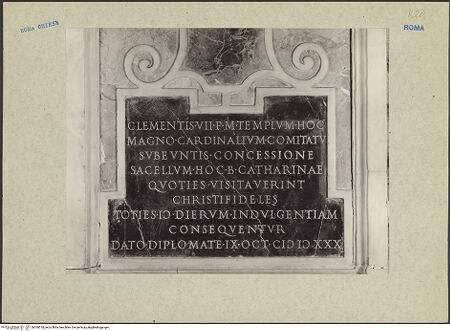 ROMA CHIESE
ROMA
CLEMENTIS·VII·P·M·TEMPLVM·HOC
MAGNO·CARDINALIVM·COMITATV
SVBEVNTIS·CONCESSIONE
SACELLVM·HOC·B·CATHARINAE
QVOTIES·VISITAVERINT
CHRISTIFIDELES
TOTIES·IO·DIERVM·INDVLGENTIAM
CONSEQVENTVR
DATO·DIPLOMATE·IX·OCT·CIƆ IƆ·XXX